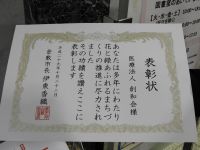 表彰状
医療法人 創和会様
あなたは多年にわたり
花と緑あふれるまちづ
くりの推進に尽力され
ました
その功績を讃えここに
表彰します
平成二十九年十月二十八日
倉敷市長 伊東香織